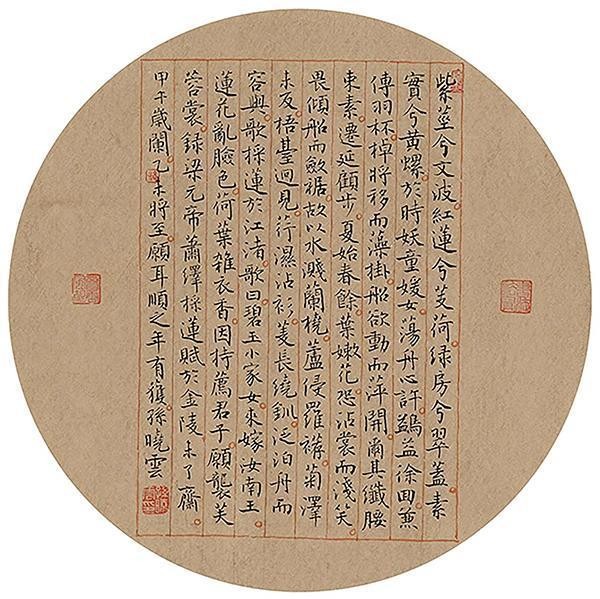 紫莖兮文波紅蓮兮芰荷綠房兮翠蓋素
實兮黃螺於時妖童媛女蕩舟心許鷁益徐回兼
傳羽杯棹將移而藻掛船欲動而萍開爾其纖腰
束素遷延顧步夏始春餘葉嫩花恐沾裳而淺笑
畏傾船而斂裾故以水濺蘭橈蘆侵羅襪菊澤
未反梧臺迥見荇濕沾衫菱長繞釧泛泊舟而
容與歌採蓮於江渚歌曰碧玉小家女來嫁汝南王
蓮花亂臉色荷葉雜衣香因持薦君子願襲芙
蓉裳錄梁元帝蕭繹採蓮賦於金陵未了齋
甲午歲闌乙未將至願耳順之年有獲孫曉雲